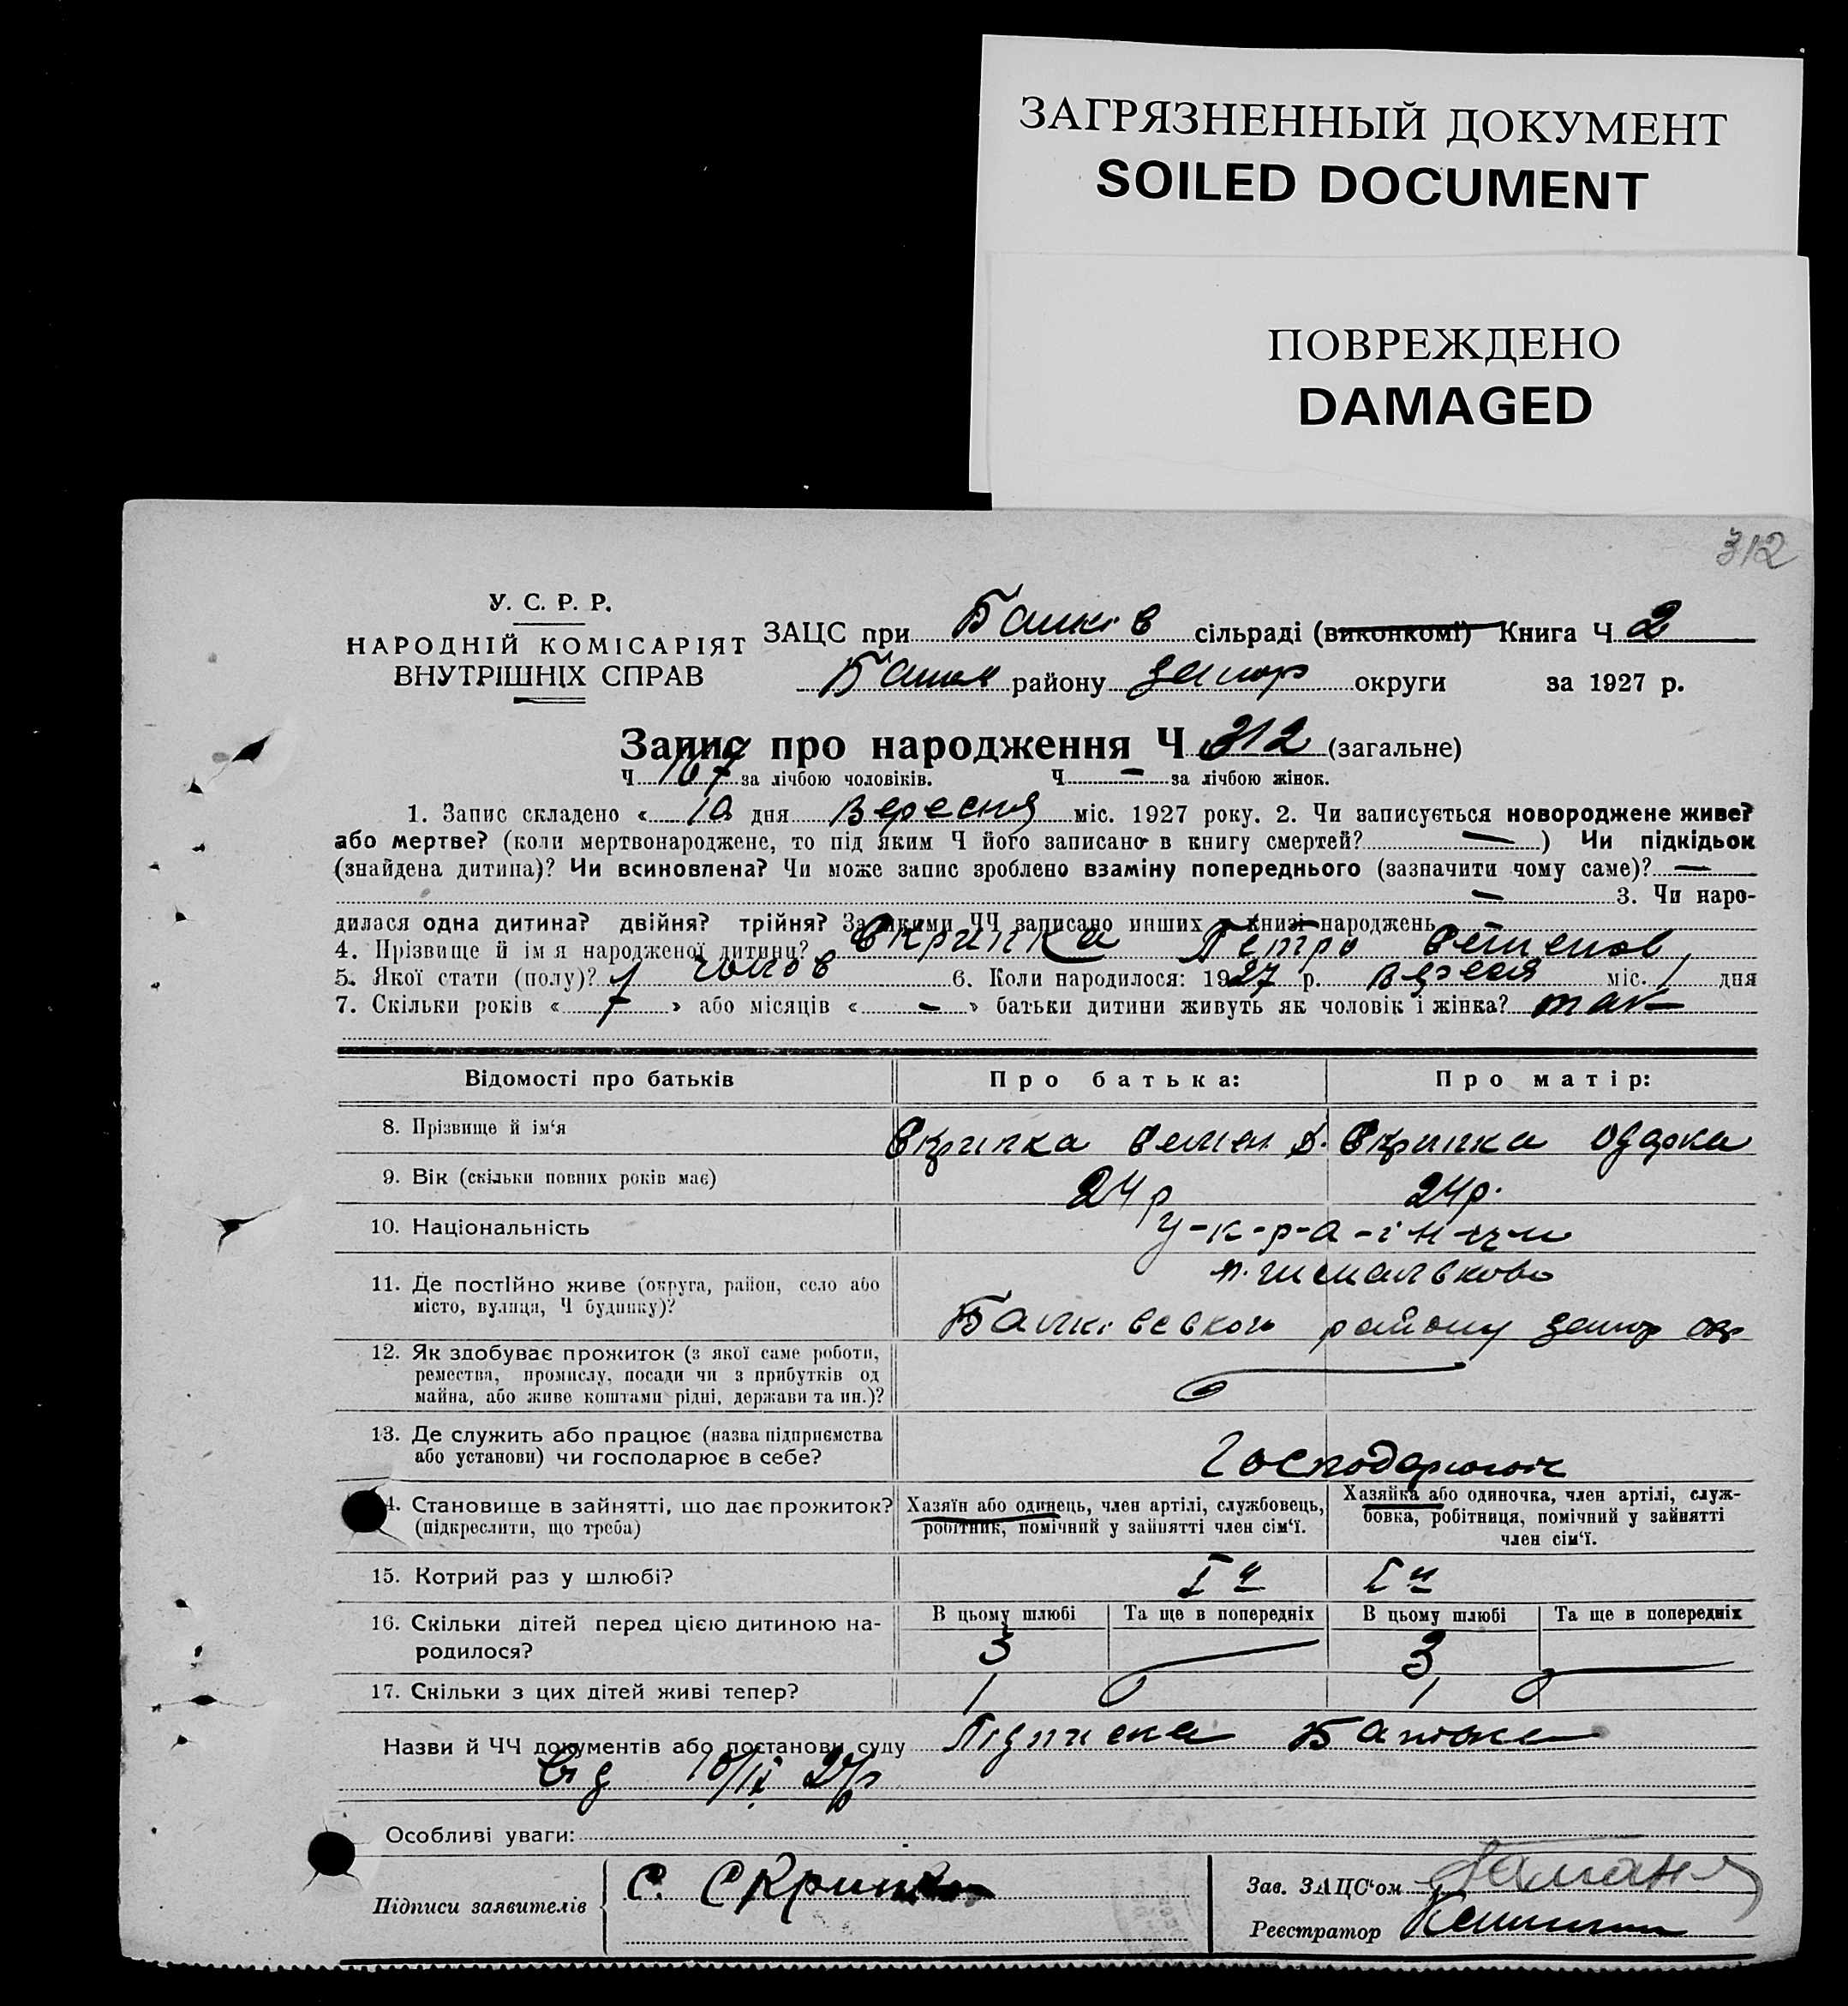 ЗАГРЯЗНЕННЫЙ ДОКУМЕНТ
SOILED DOCUMENT
ПОВРЕЖДЕНО
DAMAGED
312
У. С. Р. Р.
НАРОДНІЙ КОМІСАРІЯТ
ВНУТРІШНІХ СПРАВ
ЗАЦС при сільраді (виконкомі) Книга Ч 2
району запор округи за 1927 р.
Запис про народження Ч 312 (загальне)
Ч 167 за лічбою чоловіків. Ч — за лічбою жінок.
1. Запис складено « 10 дня Вересня міс. 1927 року. 2. Чи записується новороджене живе?
або мертве? (коли мертвонароджене, то під яким Ч його записано в книгу смертей? — ) Чи підкідьок
(знайдена дитина)? Чи всиновлена? Чи може запис зроблено взаміну попереднього (зазначити чому саме)? —
— 3. Чи наро-
дилася одна дитина? двійня? трійня? За якими ЧЧ записано инших в книзі народжень
4. Прізвище й ім'я народженої дитини? Скрипка Петро Семенов
5. Якої стати (полу)? чолов 6. Коли народилося: 1927 р. Вересня міс. 1 дня
7. Скільки років « 7 » або місяців « — » батьки дитини живуть як чоловік і жінка? так
Відомості про батьків Про батька: Про матір:
8. Прізвище й ім‘я Скрипка Семен Д. Скрипка Одарка
9. Вік (скільки повних років має) 24 р 24 р.
10. Національність у-к-р-а-ї-н-ци
11. Де постійно живе (округа, район, село або
місто, вулиця, Ч будинку)? району запор окр
12. Як здобуває прожиток (з якої саме роботи,
ремества, промислу, посади чи з прибутків од
майна, або живе коштами рідні, держави та ин.)?
13. Де служить або працює (назва підприємства
або установи) чи господарює в себе? Господарюють
4. Становище в зайнятті, що дає прожиток?
(підкреслити, що треба)
Хазяїн або одинець, член артілі, службовець,
робітник, помічний у зайнятті член сім‘ї.
Хазяйка або одиночка, член артілі, служ-
бовка, робітниця, помічний у зайнятті
член сім‘ї.
15. Котрий раз у шлюбі? I й I й
16. Скільки дітей перед цією дитиною на-
родилося?
В цьому шлюбі Та ще в попередніх В цьому шлюбі Та ще в попередніх
3 3
17. Скільки з цих дітей живі тепер? 1 1
Назви й ЧЧ документів або постанови суду Підписка Батька
від 10/IX 27р
Особливі уваги:
Підписи заявителів С. Скрипка
Зав. ЗАЦС‘ом
Реєстратор